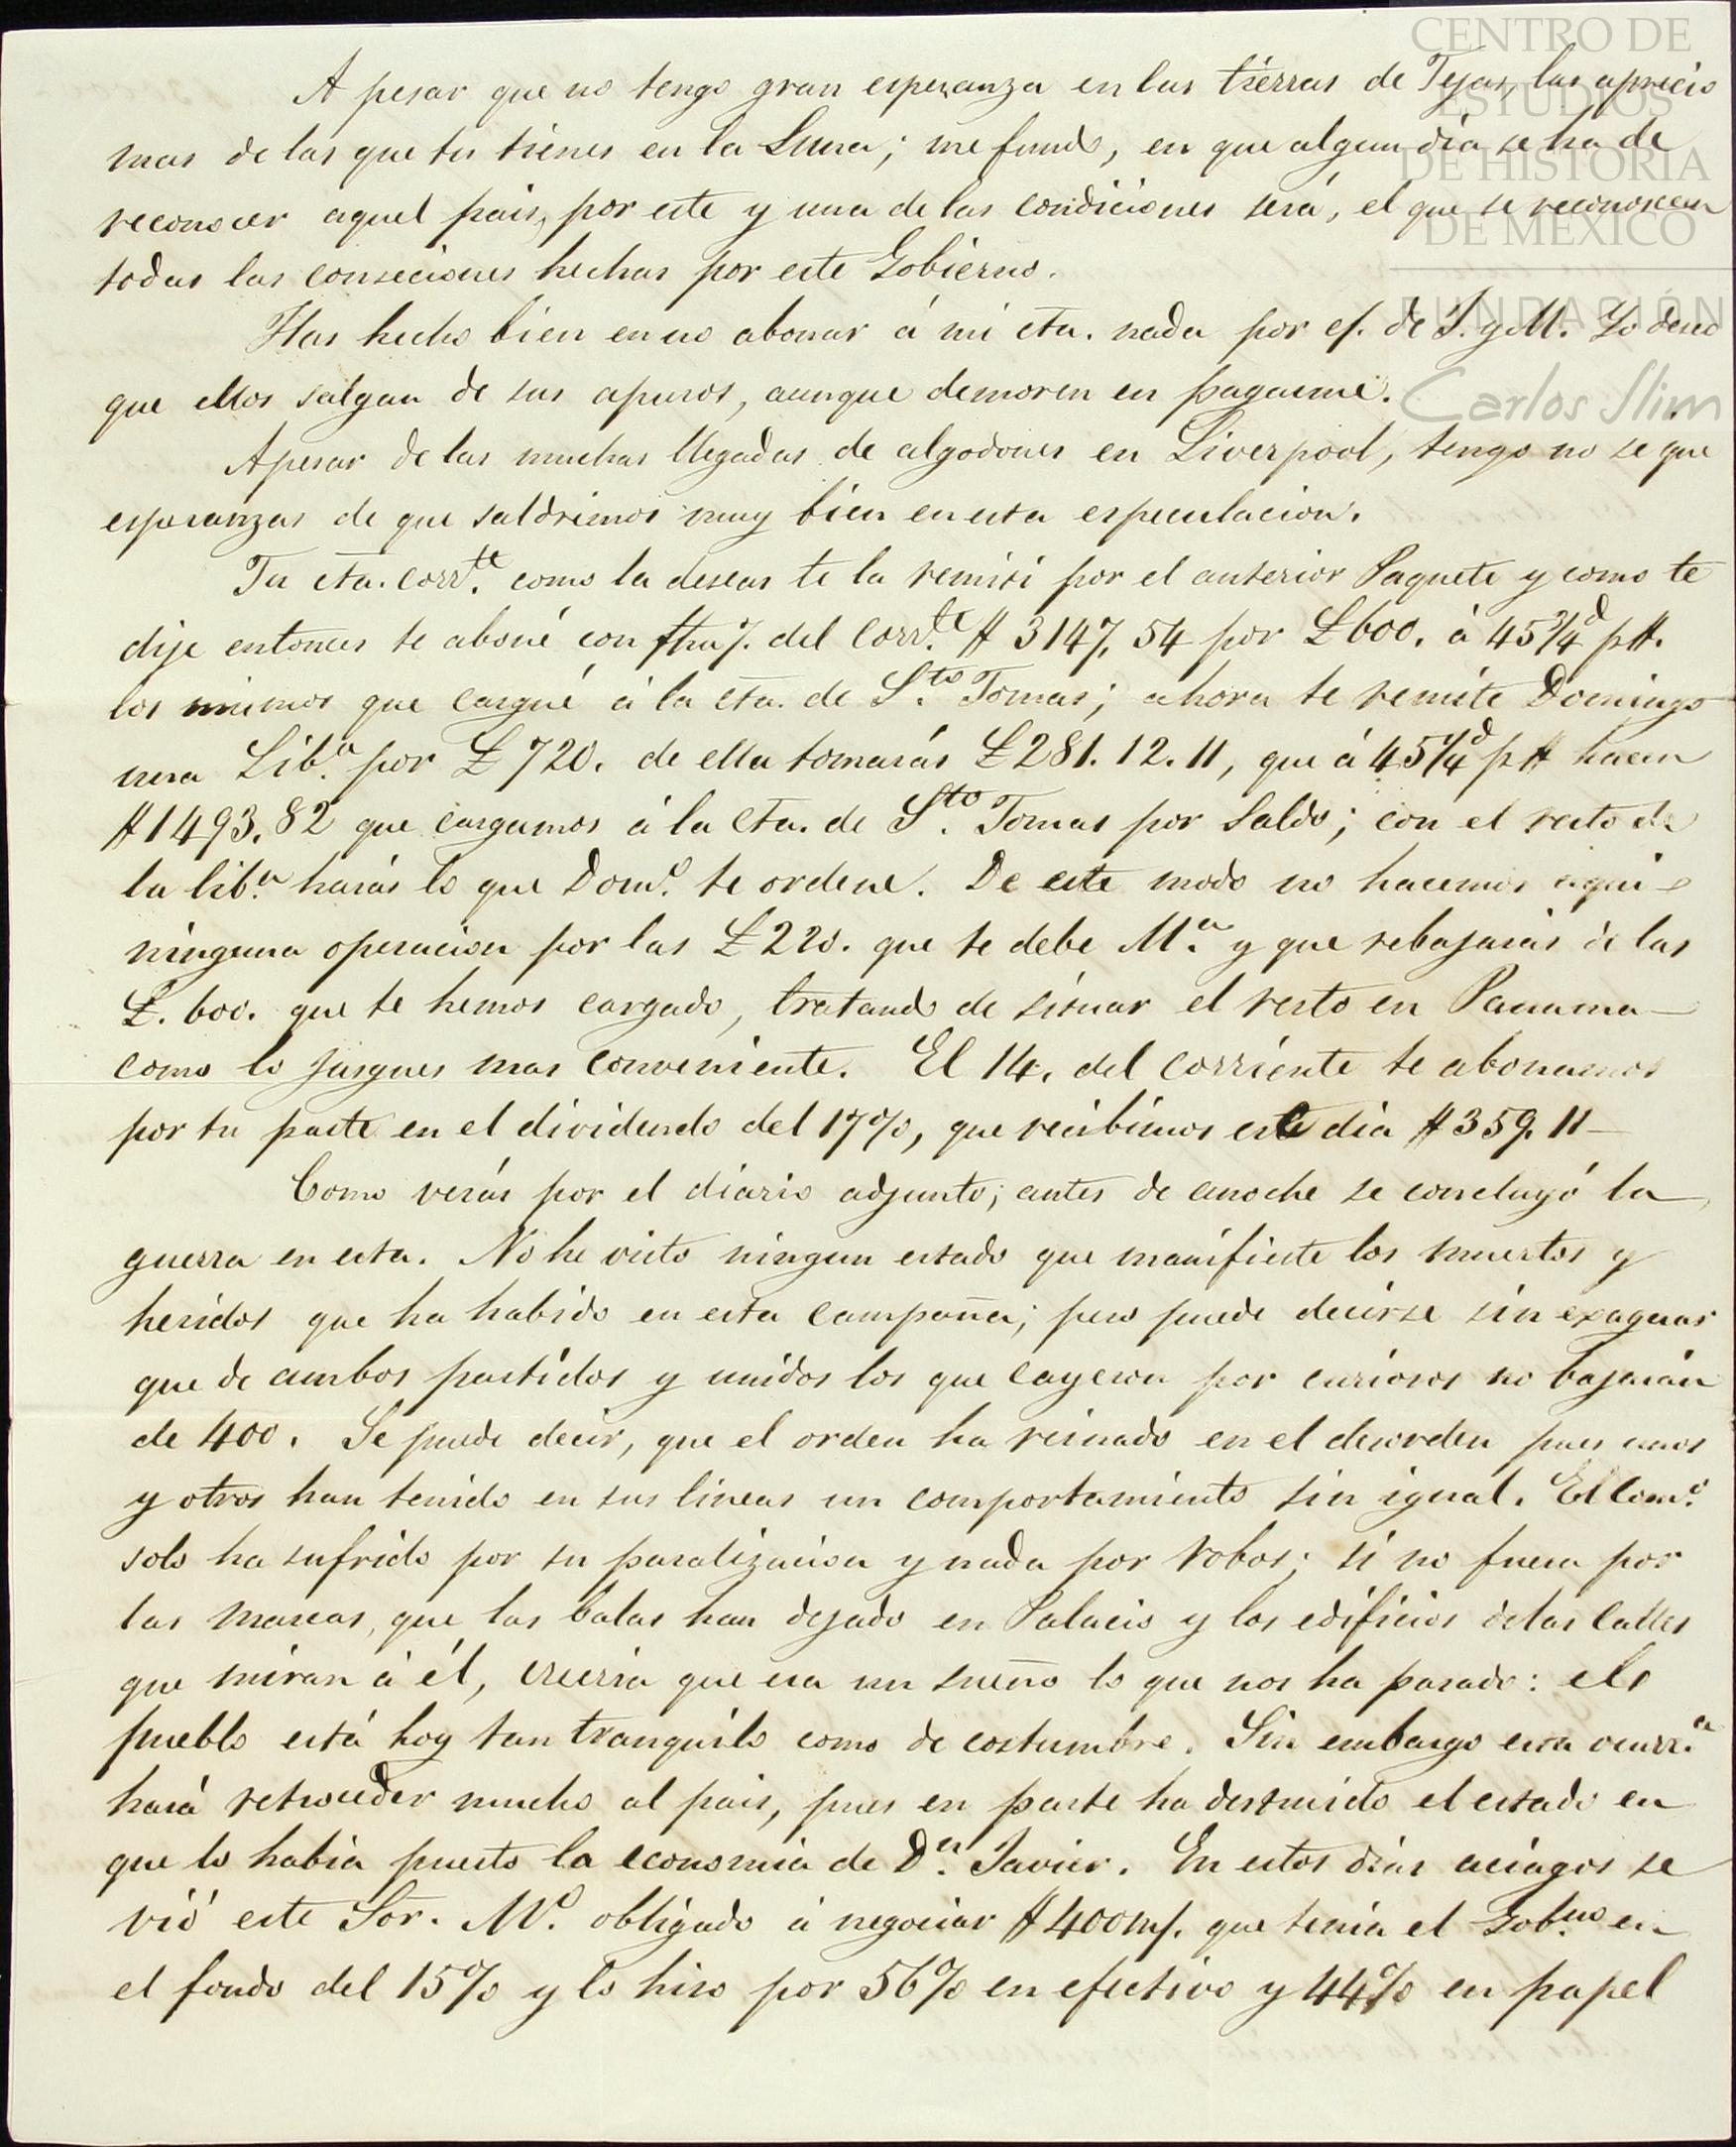 CENTRO DE
ESTUDIOS
DE HISTORIA
DE MÉXICO
FUNDACIÓN
Carlos Slim
A pesar que no tengo gran esperanza en las tierras de Tejas, las aprecio
mas de las que tu tienes en la Luna; me fundo, en que algun dia se ha de
reconocer aquel pais, por este y una de las condiciones será, el que se reconoscan
todas las conseciones hechas por este Gobierno.
Has hecho bien en no abonar á mi cta. nada por cf. de S. y M. Yo deseo
que ellos salgan de sus apuros, aunque demoren en pagarme.
Apesar de las muchas llegadas de algodones en Liverpool, tengo no se que
esperanzas de que saldrimos muy bien en esta especulacion.
Tu cta. corr.te como la deseas te la remiti por el anterior Paquete y como te
dije entonces te aboné con del Corr.te $ 3147, 54 por £600. á 45 3/4 d p$.
los mismos que cargué á la cta. de S.to Tomas; ahora te remite Domingo
una Lib.a por £720. de ella tomarás £281. 12. 11, que á 45 1/4 d p$ hacen
$1493. 82 que cargamos á la cta. de S.to Tomas por Saldo; con el resto de
la lib.a harás lo que Dom.o te ordene. De este modo no hacemos aqui
ninguna operacion por las £220. que te debe M.a y que rebajarás de las
£. 600. que te hemos cargado, tratando de situar el resto en Panama
como lo jusgues mas conveniente. El 14. del corriente te abonamos
por tu parte en el dividendo del 17%, que recibimos este dia $359. 11
Como verás por el diario adjunto; antes de anoche se concluyó la
guerra en esta. No he visto ningun estado que manifieste los muertos y
heridos que ha habido en esta campaña; pero puede decirse sin exagerar
que de ambos partidos y unidos los que cayeron por curiosos no bajarán
de 400. Se puede decir, que el orden ha reinado en el desorden pues unos
y otros han tenido en sus lineas un comportamiento sin igual. El Com.o
solo ha sufrido por su paralizacion y nada por robos; si no fuera por
las marcas, que las balas han dejado en Palacio y los edificios de las Calles
que miran á él, creeria que era un sueño lo que nos ha pasado: el
pueblo está hoy tan tranquilo como de costumbre. Sin embargo esta ocurr.a
hará retroceder mucho al pais, pues en parte ha destruido el estado en
que lo habia puesto la economia de D.n Javier. En estos dias aciagos se
vió este Sor. M.o obligado á negociar $400mf. que tenia el Gob.no en
el fondo del 15% y lo hiso por 56% en efectivo y 44% en papel